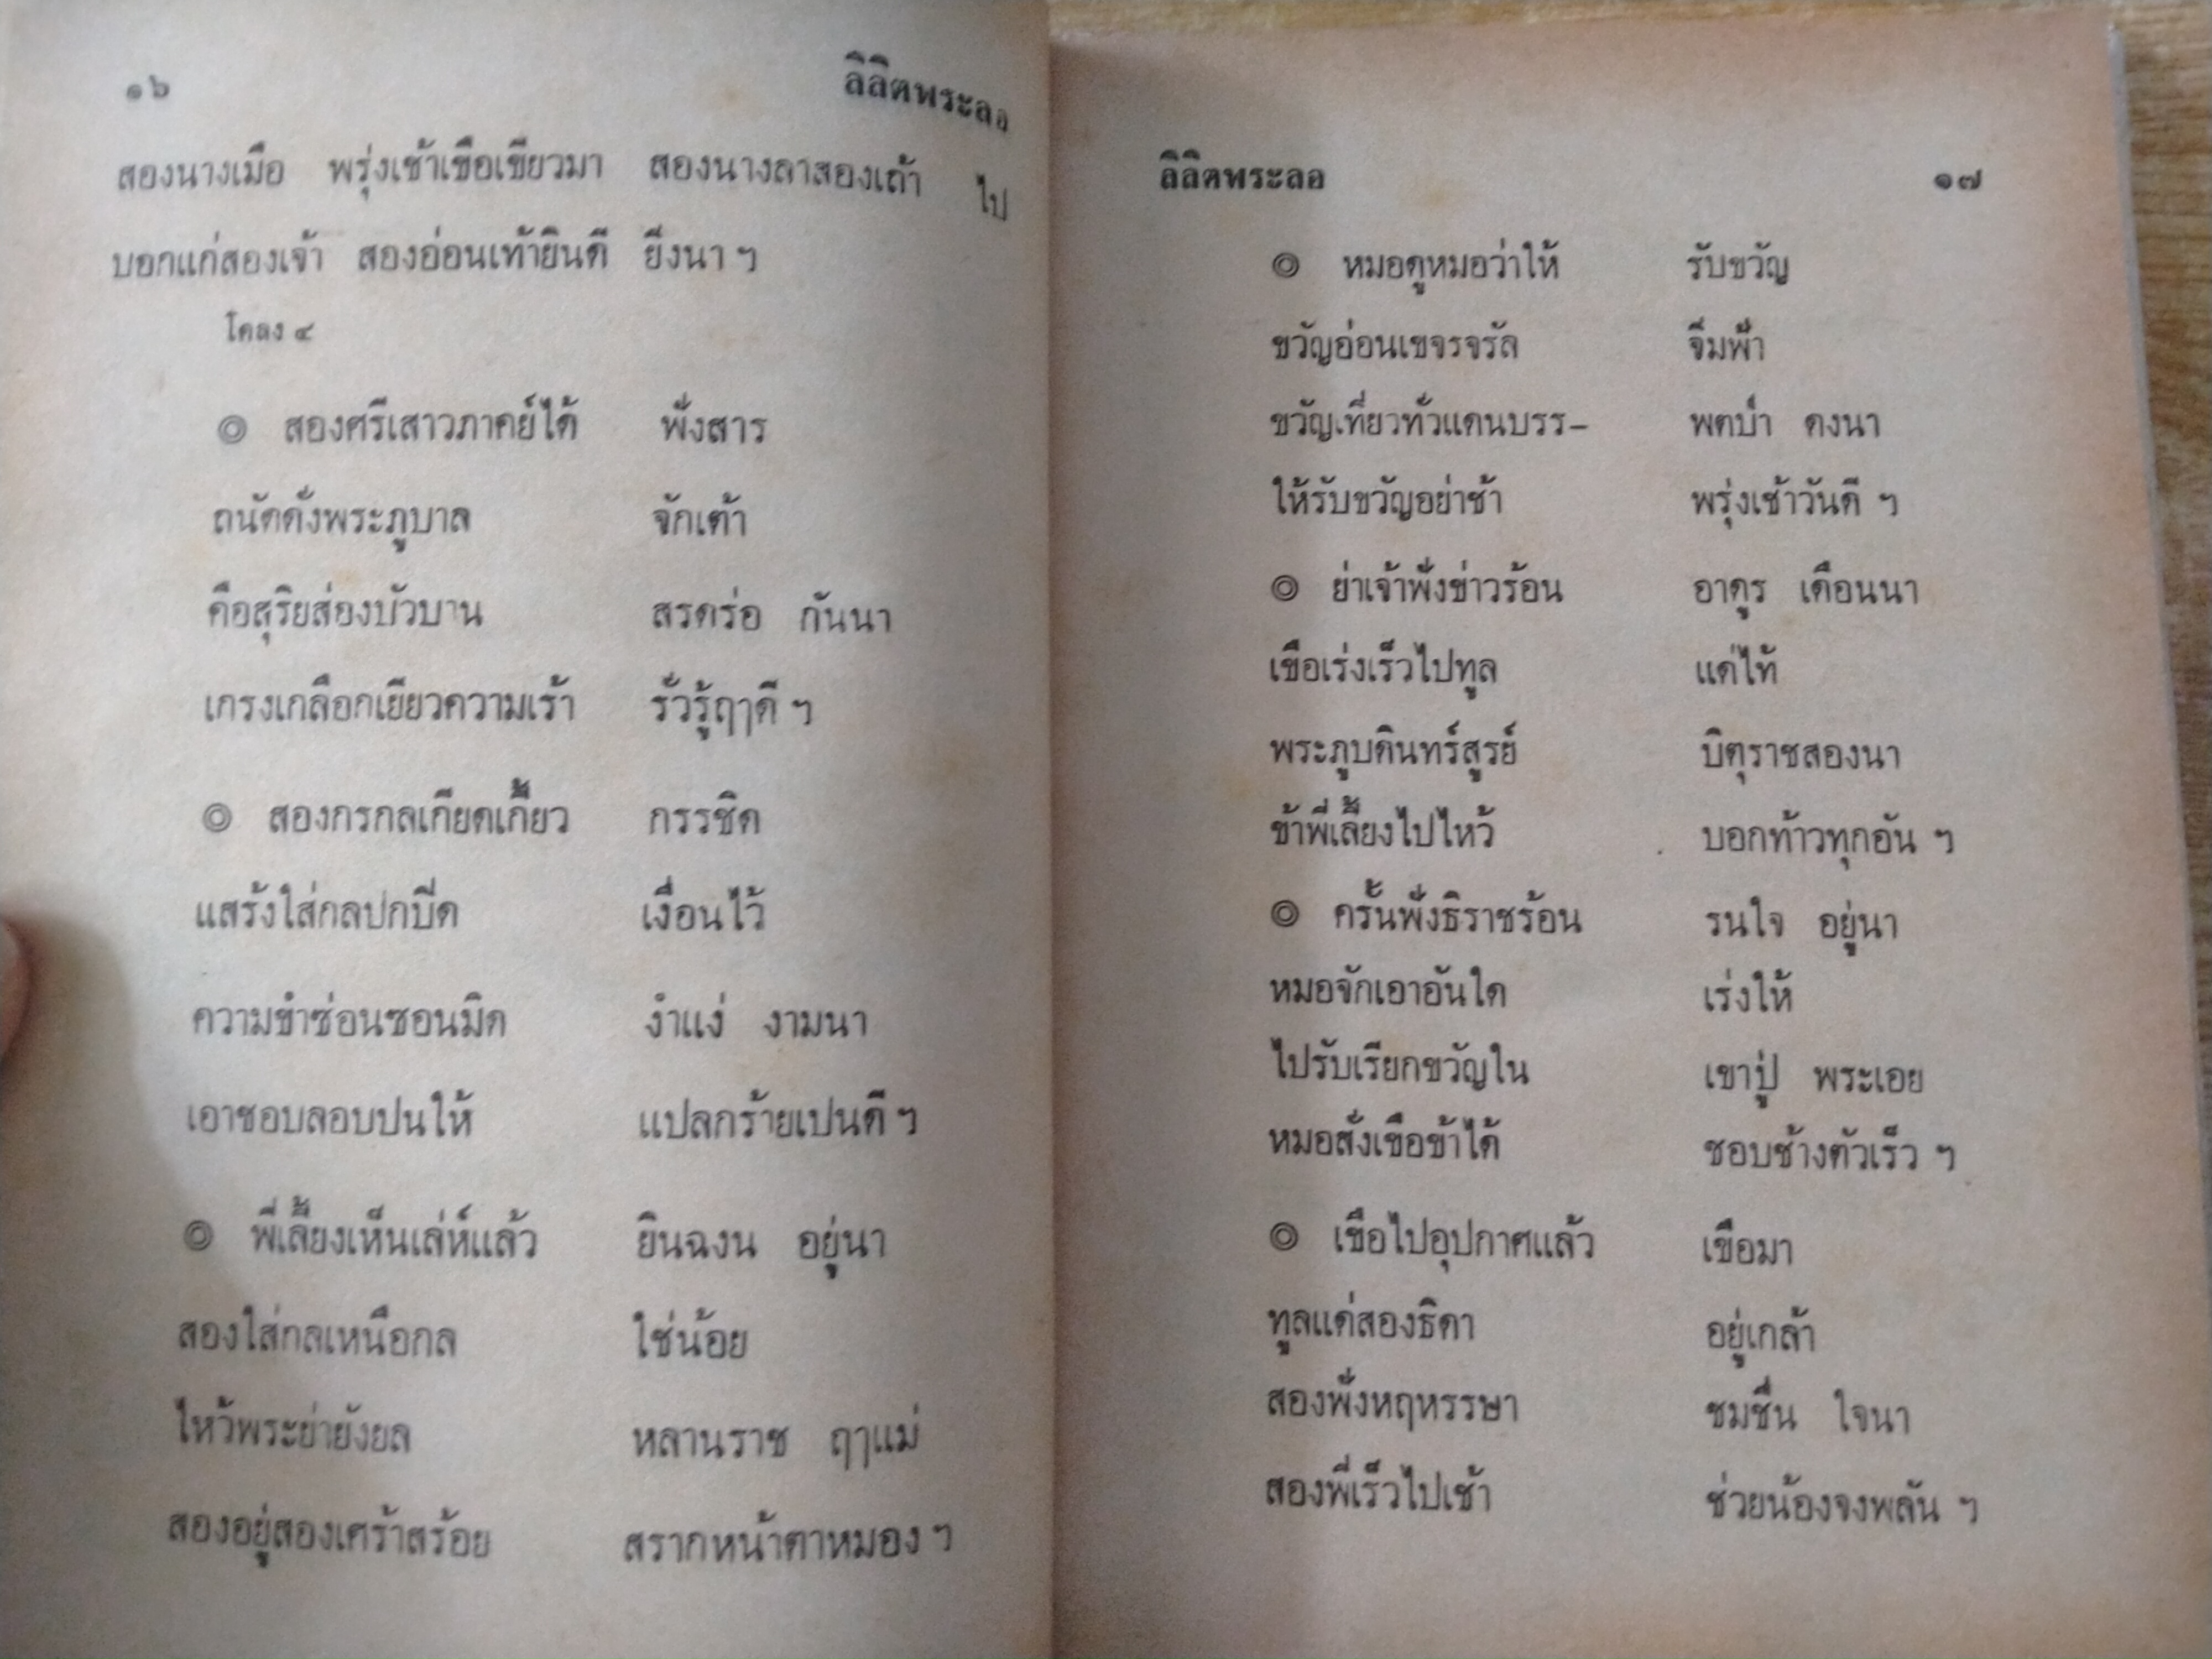 ๑๖ ลิลิตพระลอ
สองนางเมือ พรุ่งเช้าเขือเขียวมา สองนางลาสองเถ้า ไป
บอกแก่สองเจ้า สองอ่อนเท้ายินดี ยิ่งนา ฯ
โคลง ๔
๏ สองศรีเสาวภาคย์ได้ ฟังสาร
ถนัดดั่งพระภูบาล จักเต้า
คือสุริยส่องบัวบาน สรดร่อ กันนา
เกรงเกลือกเยียวความเร้า รั่วรู้ฤๅดี ฯ
๏ สองกรกลเกียดเกี้ยว กรรชิด
แสร้งใส่กลปกปิด เงื่อนไว้
ความขำซ่อนซอนมิด งำแง่ งามนา
เอาชอบลอบปนให้ แปลกร้ายเปนดี ฯ
๏ พี่เลี้ยงเห็นเล่ห์แล้ว ยินฉงน อยู่นา
สองใส่กลเหนือกล ใช่น้อย
ไหว้พระย่ายังยล หลานราช ฤๅแม่
สองอยู่สองเศร้าสร้อย สรากหน้าตาหมอง ฯ
ลิลิตพระลอ ๑๗
๏ หมอดูหมอว่าให้ รับขวัญ
ขวัญอ่อนเขจรจรัล จึ่มฟ้า
ขวัญเที่ยวทั่วแดนบรร- พตป่า ดงนา
ให้รับขวัญอย่าช้า พรุ่งเช้าวันดี ฯ
๏ ย่าเจ้าฟังข่าวร้อน อาดูร เดือนนา
เขือเร่งเร็วไปทูล แด่ไท้
พระภูบดินทร์สูรย์ บิตุราชสองนา
ข้าพี่เลี้ยงไปไหว้ บอกท้าวทุกอัน ฯ
๏ ครั้นฟังธิราชร้อน รนใจ อยู่นา
หมอจักเอาอันใด เร่งให้
ไปรับเรียกขวัญใน เขาปู่ พระเอย
หมอสั่งเขือข้าได้ ชอบช้างตัวเร็ว ฯ
๏ เขือไปอุปกาศแล้ว เขือมา
ทูลแด่สองธิดา อยู่เกล้า
สองฟังหฤหรรษา ชมชื่น ใจนา
สองพี่เร็วไปเช้า ช่วยน้องจงพลัน ฯ